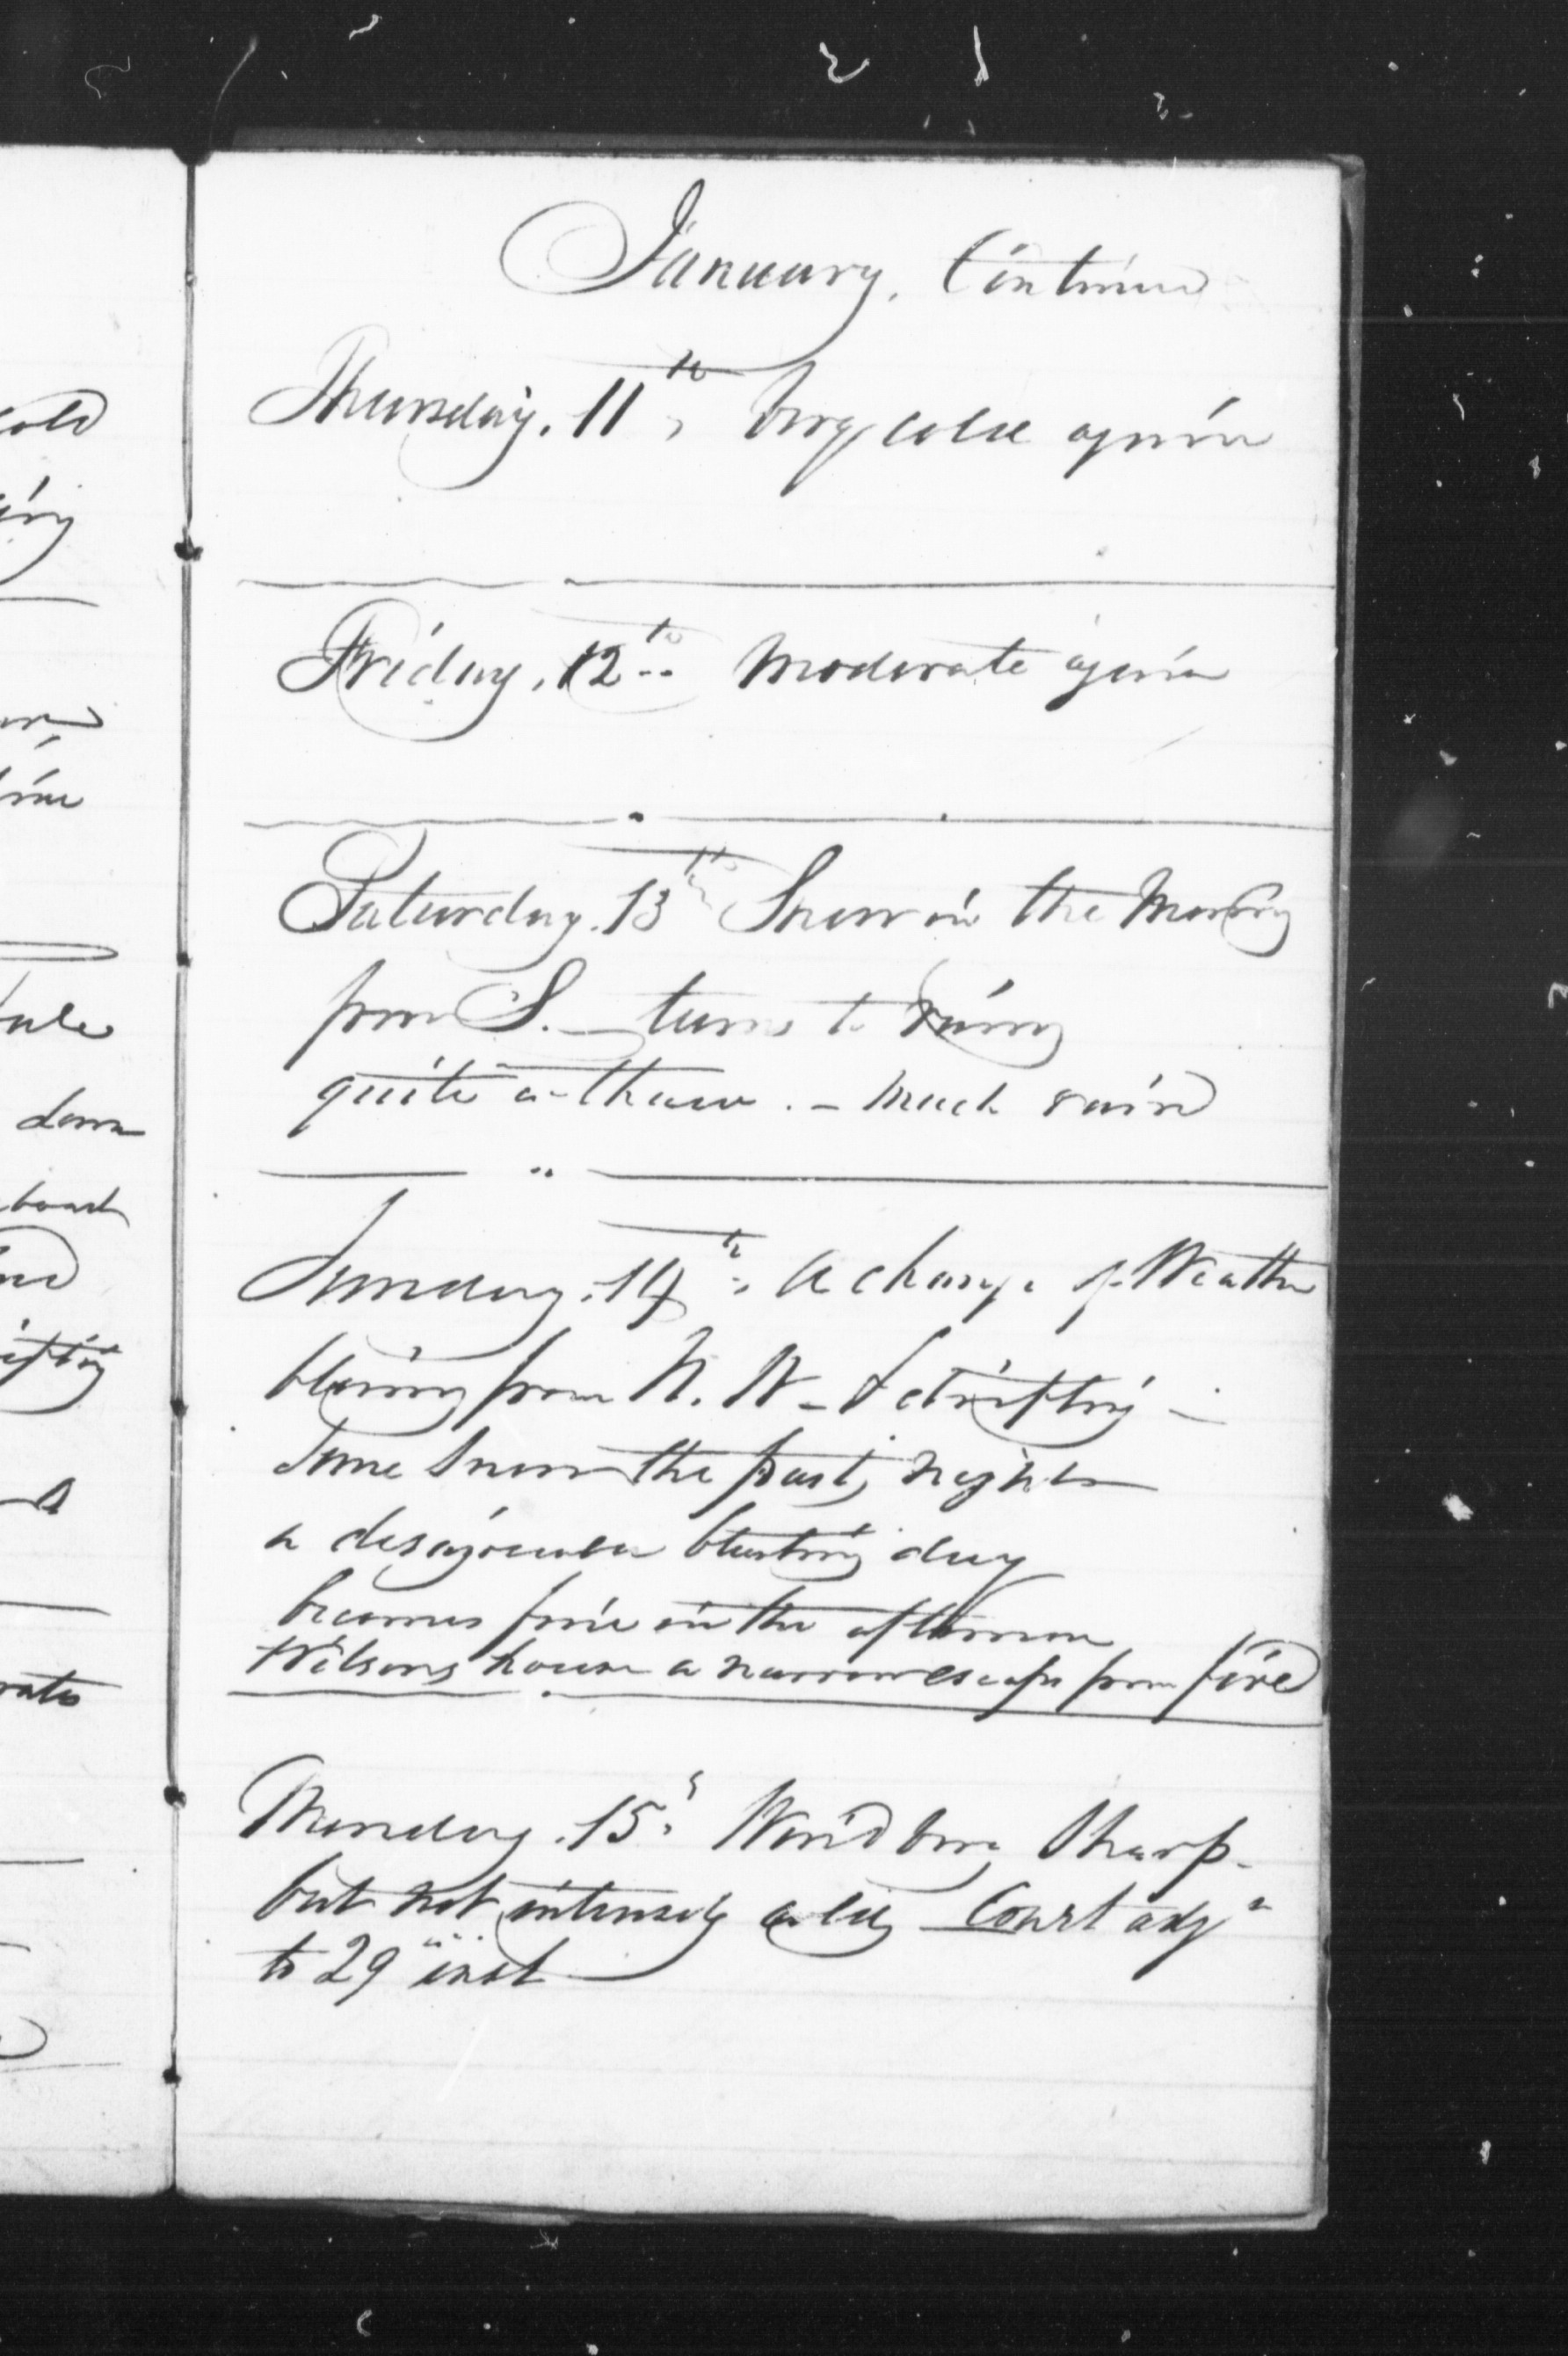 January, Continued
Thursday. 11th, very cold again
Friday. 12th Moderate again
Saturday. 13th Snow in the Morning
from S. — turns to raining
quite a thaw. — Much rain
Sunday. 14th, A change of Weather
blowing from N. W — & drifting —
Some Snow the past night
a disagreeable blustry day
becomes fine in the afternoon
Wilsons house a narrow escape from fire
Monday. 15, Wind very Sharp —
but not intensely cold — Court adjd
to 29 inst
cold
down
board